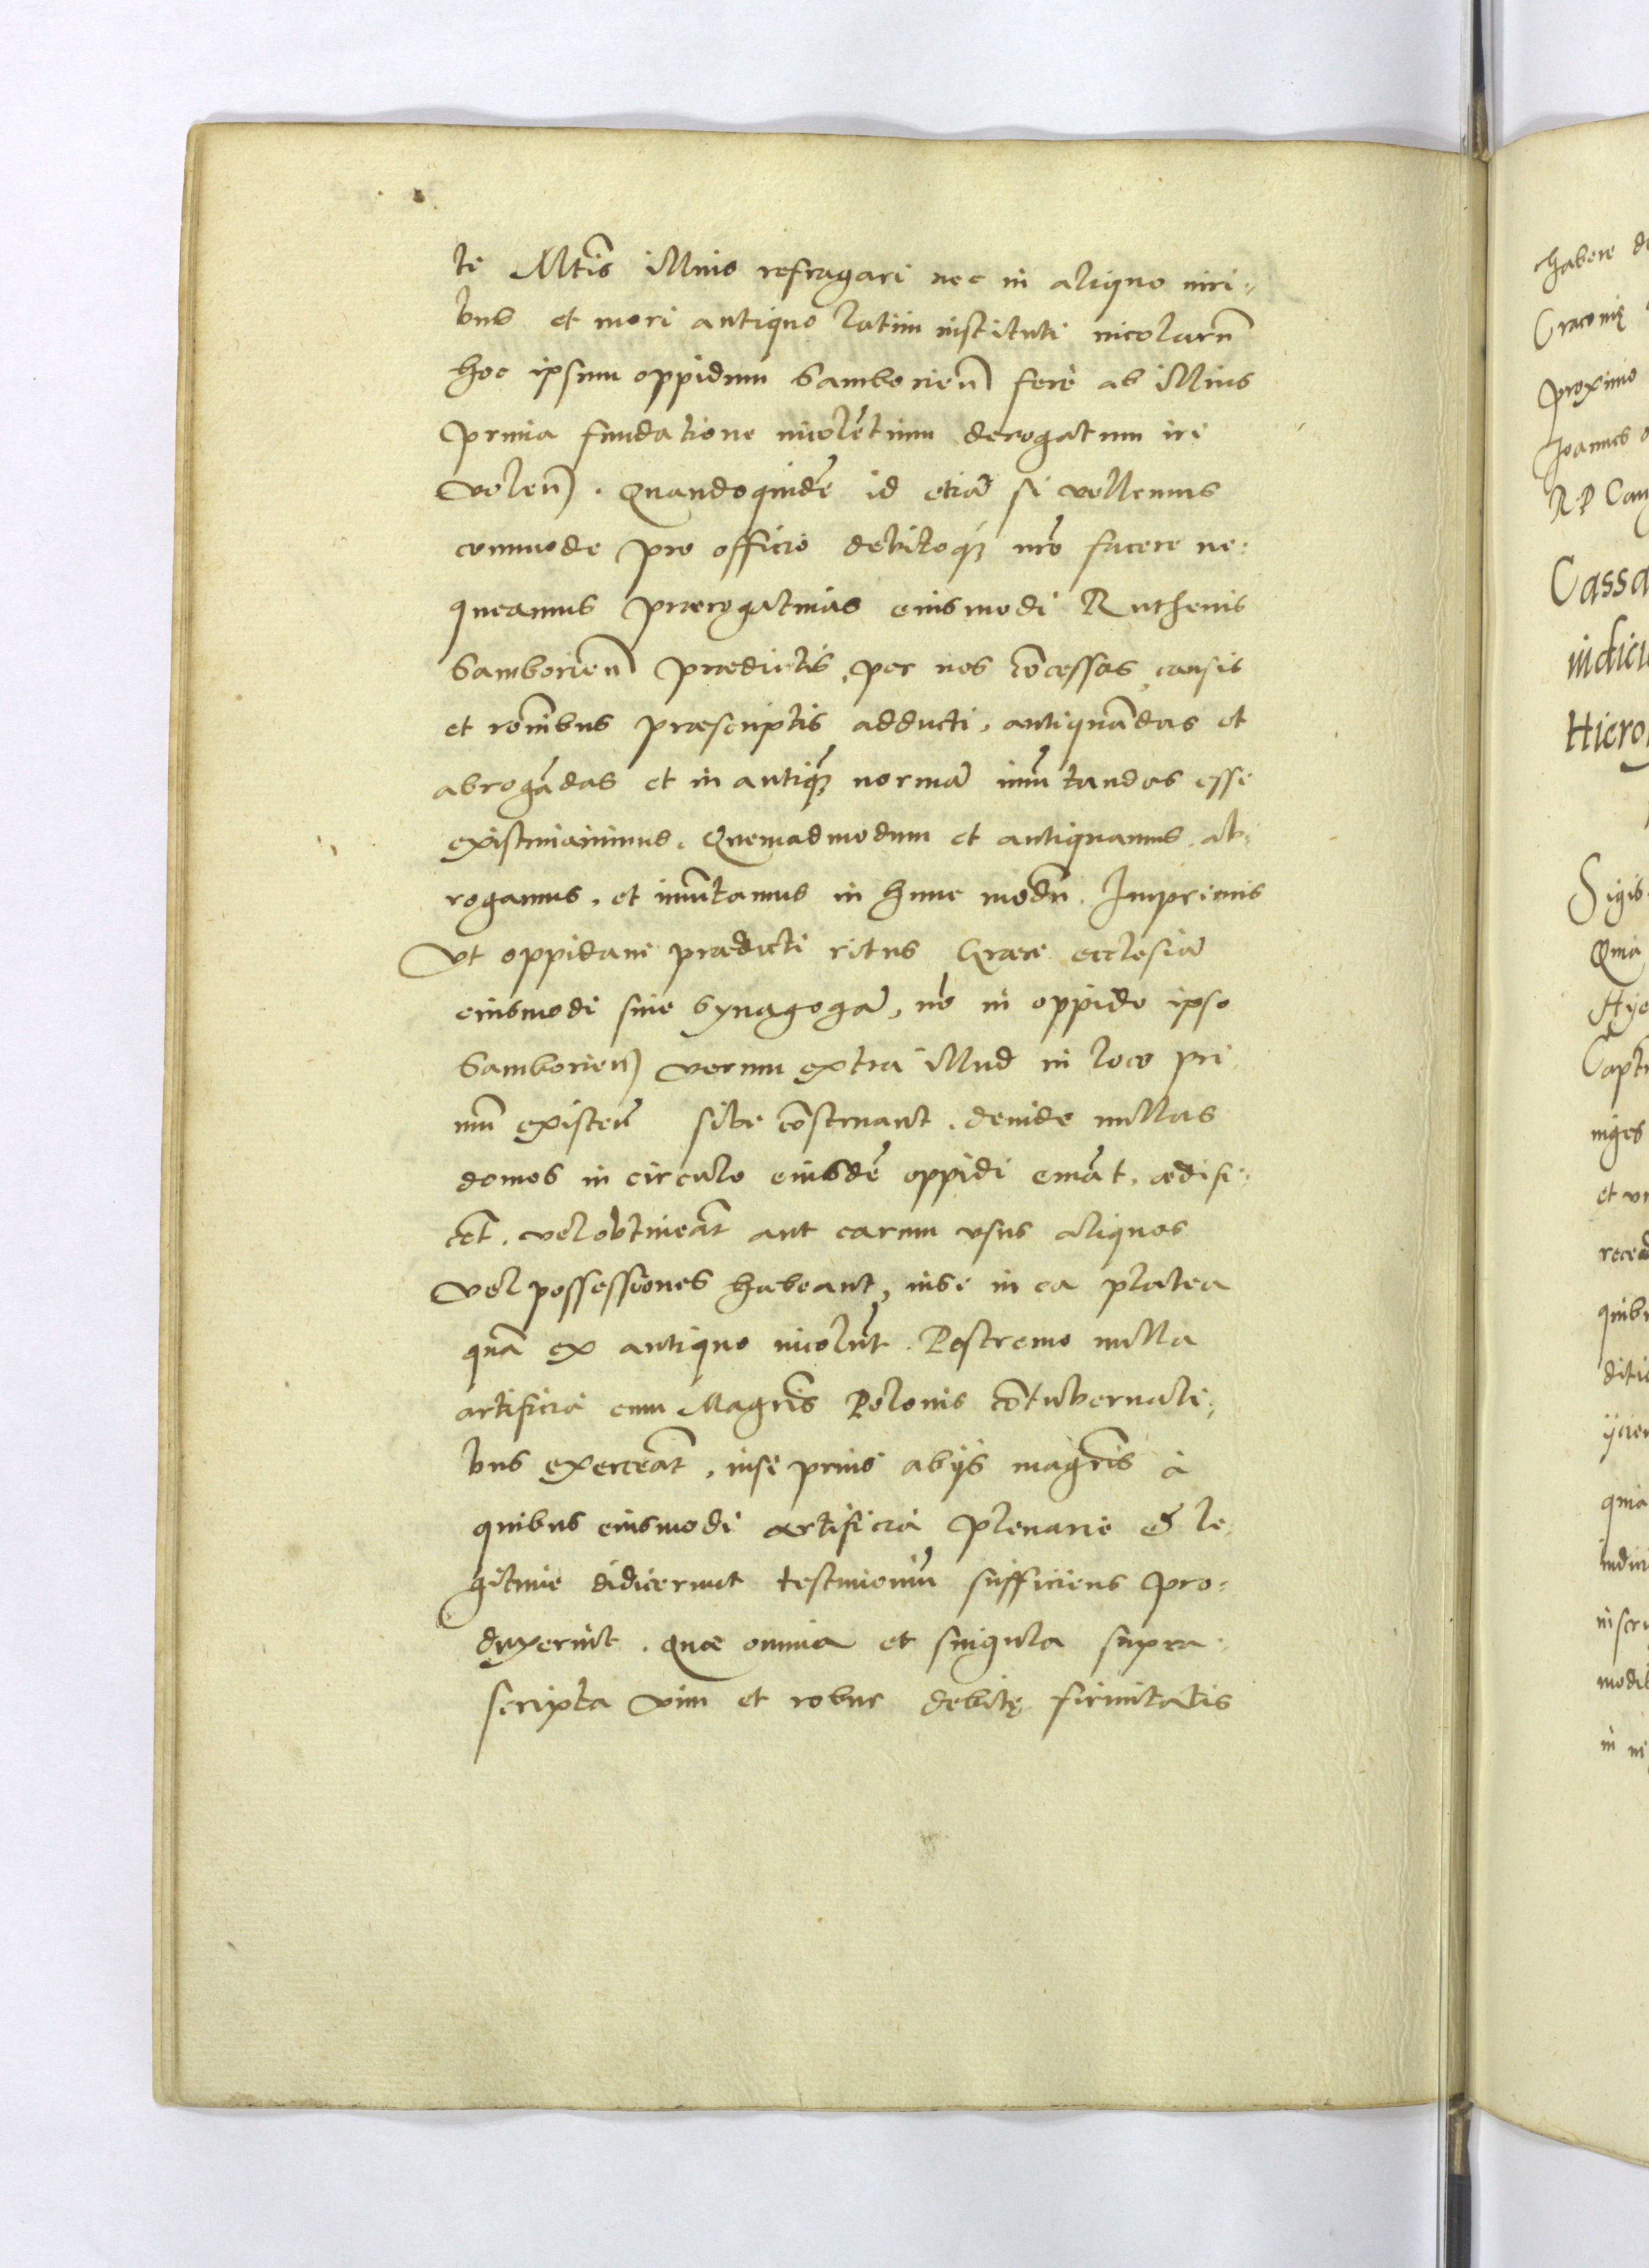 te Mtis illius refragari nec in aliquo iuri-
bus et mori antiquo latini instituti incolarū
hoc ipsum oppidum Samborien fere ab illius
prima fundatione incolētium derogatum iri
volen. Quandoquidē id etiā si vellemus
commode pro officio debitoq nrō facere ne-
queamus prærogativas eiusmodi Ruthenis
Samborien prædictis, per nos cōcessas, causis
et rōnibus præscriptis adducti, antiquādas et
abrogādas et in antiquā normā imūtandas esse
existimavimus. Quemadmodum et antiquamus, ab-
rogamus, et imūtamus in hunc modū. Imprimis
Ut oppidani prædicti ritus Græci ecclesiā
eiusmodi sive Synagogā, nō in oppido ipso
Samborien verum extra illud in loco pri
mū existeñ sibi cōstruant. deinde nullas
domos in circulo eiusdē oppidi emāt, ædifi-
cēt, vel obtineāt aut earum usus aliquos
vel possessiones habeant, nisi in ea platea
quā ex antiquo incolūt. Postremo nulla
artificia cum Magris Polonis cōtubernali-
bus exerceāt, nisi prius ab ijs magris à
quibus eiusmodi artificia plenarie & le-
gitime didicerunt testimoniū sufficiens pro-
duxerint. quæ omnia et singula supra-
scripta vim et robur debitę firmitatis
habere
Cracovię
proximo
Joannes
R. P. Cam
Cassa
indici
Hiero
Sigis
Quia
Hye
Capt
niges
quibu
quia
iudici
modi
in